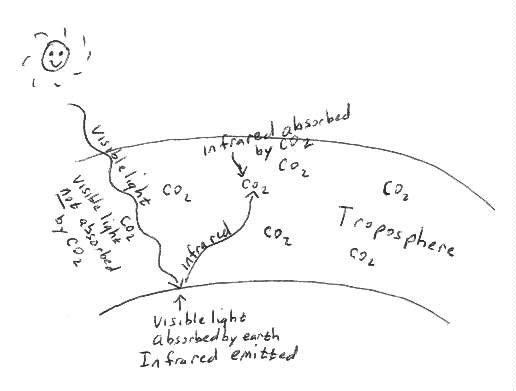 Visible light
Visible light
not absorbed
by CO2
CO2
CO2
Infrared absorbed
by CO2
CO2
CO2
CO2
Infrared
CO2
Troposphere
CO2
Visible light
absorbed by earth
Infrared emitted